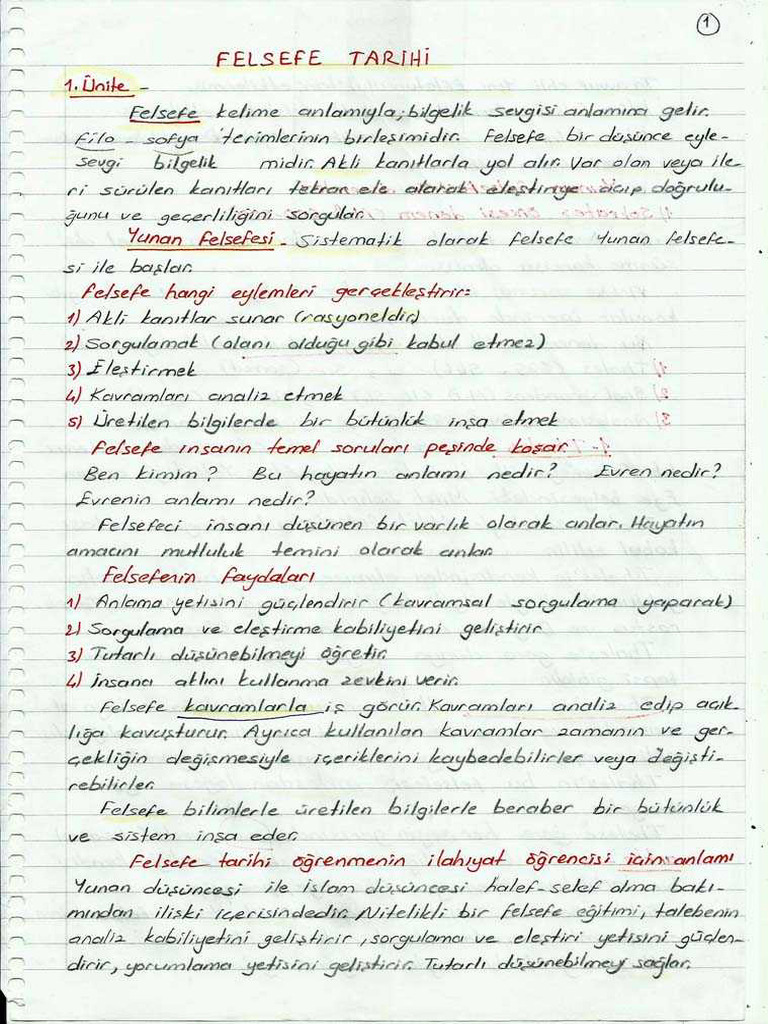 1
FELSEFE TARİHİ
1. Ünite -
Felsefe kelime anlamıyla; bilgelik sevgisi anlamına gelir.
Filo - sofya terimlerinin birleşimidir. Felsefe bir düşünce eyle-
sevgi bilgelik midir. Akli kanıtlarla yol alır. Var olan veya ile-
ri sürülen kanıtları tekrar ele alarak eleştiriye açıp doğrulu-
ğunu ve geçerliliğini sorgular.
Yunan Felsefesi - Sistematik olarak felsefe Yunan felsefe-
si ile başlar.
Felsefe hangi eylemleri gerçekleştirir:
1) Akli kanıtlar sunar (rasyoneldir)
2) Sorgulamak (olanı olduğu gibi kabul etmez)
3) Eleştirmek
4) Kavramları analiz etmek
5) Üretilen bilgilerde bir bütünlük inşa etmek
Felsefe insanın temel soruları peşinde koşar.
Ben kimim? Bu hayatın anlamı nedir? Evren nedir?
Evrenin anlamı nedir?
Felsefeci insanı düşünen bir varlık olarak anlar. Hayatın
amacını mutluluk temini olarak anlar.
Felsefenin faydaları
1) Anlama yetisini güçlendirir (kavramsal sorgulama yaparak)
2) Sorgulama ve eleştirme kabiliyetini geliştirir
3) Tutarlı düşünebilmeyi öğretir.
4) İnsana aklını kullanma zevkini verir.
Felsefe kavramlarla iş görür. Kavramları analiz edip açık-
lığa kavuşturur. Ayrıca kullanılan kavramlar zamanın ve ger-
çekliğin değişmesiyle içeriklerini kaybedebilirler veya değişti-
rebilirler.
Felsefe bilimlerle üretilen bilgilerle beraber bir bütünlük
ve sistem inşa eder.
Felsefe tarihi öğrenmenin ilahiyat öğrencisi için anlamı
Yunan düşüncesi ile İslam düşüncesi halef-selef olma bakı-
mından ilişki içerisindedir. Nitelikli bir felsefe eğitimi, talebenin
analiz kabiliyetini geliştirir, sorgulama ve eleştiri yetisini güçlen-
dirir, yorumlama yetisini geliştirir. Tutarlı düşünebilmeyi sağlar.